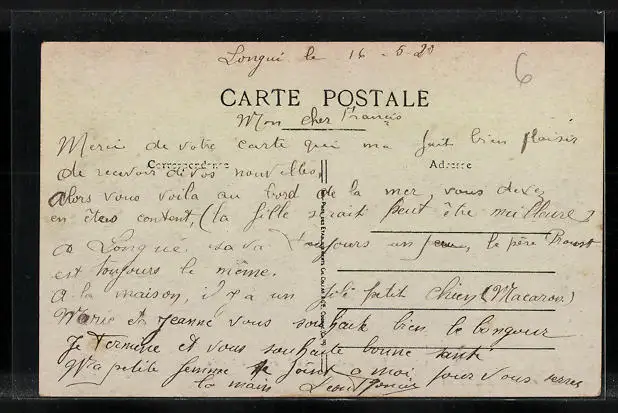 Longué le 16 - 5 - 20
6
CARTE POSTALE
Mon cher Francis
Merci de votre carte qui ma fait bien plaisir
Correspondance
Adresse
de recevoir de vos nouvelles,
alors vous voila au bord de la mer, vous devez
en êtes content, (la fille serait peut être meilleure)
a Longué, sa va toujours un peu, le père Proust
est toujours le même.
A la maison, il y a un joli petit chien (Macaron)
Marie et Jeanne vous souhaite bien le bongour
Je Termine et vous souhaite bonne santé
Ma petite femme se joint a moi pour vous serrer
la main